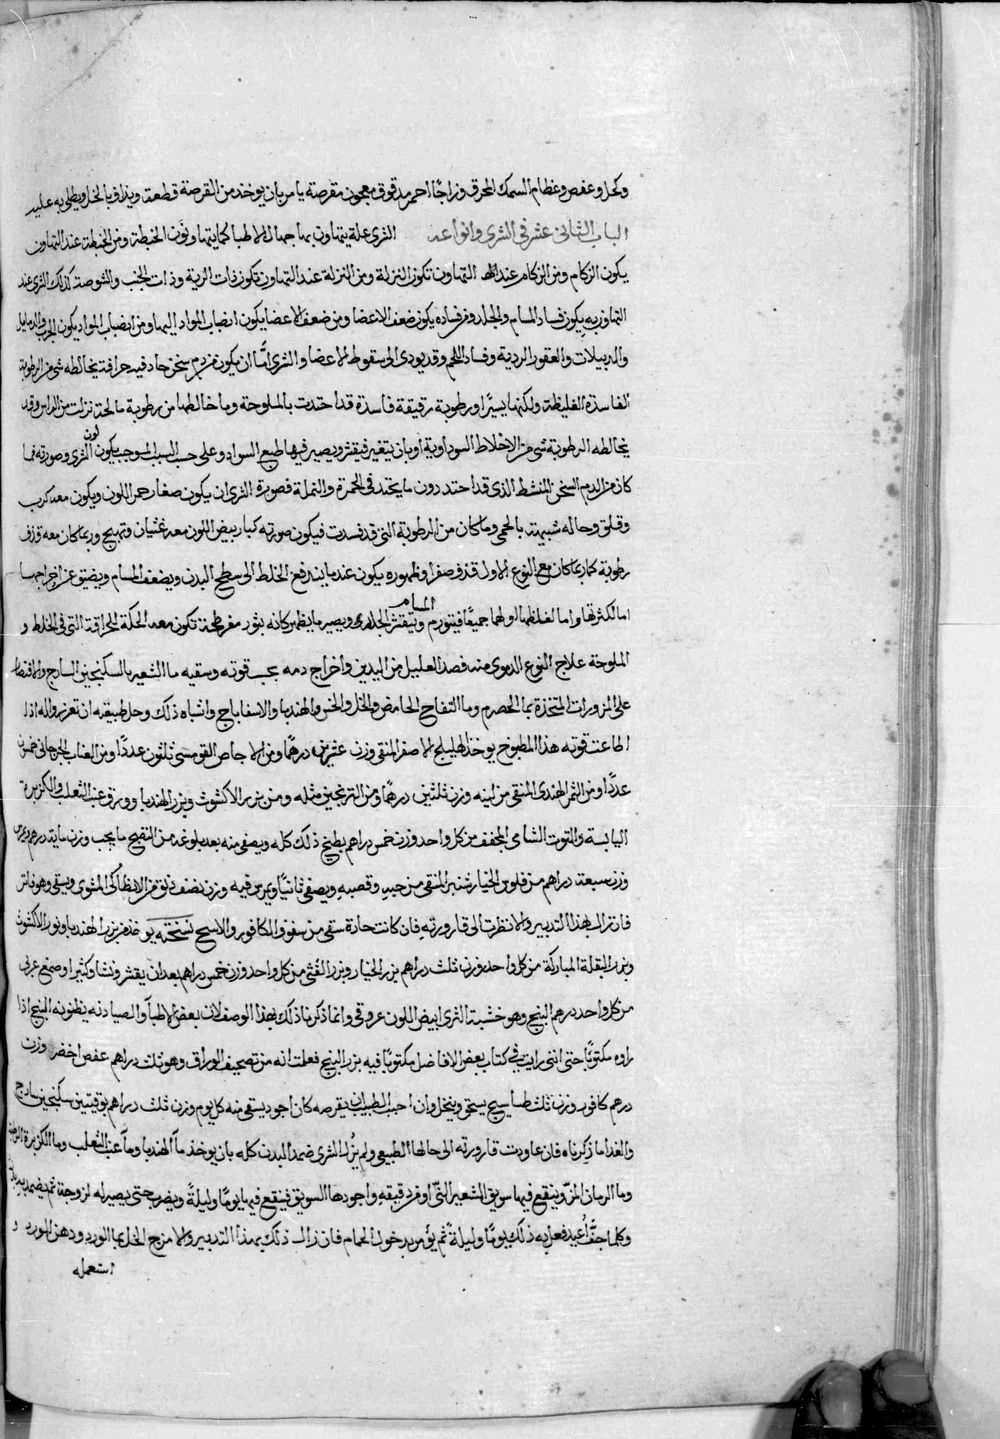 وكحل وعفص وعظام السمك المحرق وزاجا احمر مدقوق معجون مقرصة يامر بان يوخذ من القرصة قطعة ويذاف بالخل ويطلى به عليه
الباب الثانى عشر فى الشرى وانواعه الشرى علة يتهاون بها جهال الاطبا كما يتهاونون الخبطة ومن الخبطة عند التهاون
يكون الزكام ومن الزكام عند التهاون تكون النزلة ومن النزلة عند التهاون تكون ذات الرية وذات الجنب والشوصة كذلك الشرى عند
التهاون به يكون فساد المسام والجلد ومن فساده يكون ضعف الاعضا ومن ضعف الاعضا يكون انصباب المواد اليها ومن انصباب المواد يكون الجرب والدماميل
والدبيلات والعقور الردية وفساد اللحم وقد يودى الى سقوط الاعضا والشرى اما ان يكون من دم سخن حاد فيه حرافة يخالطه شى من الرطوبة
الفاسدة الغليظة ولكنها يسيرا ورطوبة رقيقة فاسدة قد احتدت بالملوحة وما خالطها من رطوبة مالحة نزلت من الراس وقد
يخالطه الرطوبة شى من الاخلاط السوداوية او بان يتغير فيقشر ويصير فيها طبع السواد وعلى حسب السبب الموجب يكون لون الشرى وصورته فما
كان من الدم السخن المنشط الذى قد احتد دون ما يحتد فى الحمرة والنملة فصورة الشرى ان يكون صغار حمر اللون ويكون معه كرب
وقلق وحاله شبيهة بالحمى وما كان من الرطوبة التى قد فسدت فيكون صورته كبار بيض اللون معه غثيان وتهيج وربما كان معه قذف
رطوبة كما ربما كان مع النوع الاول قذف صفرا وظهوره يكون عندما يندفع الخلط الى سطح البدن ويضعف المسام ويضيق عن اخراجها
اما لكثرتها واما لغلظها او لهما جميعا فيتورم المسام وتيقشر الجلد ويصير ما يظهر كانه بثور مفرطحة تكون معه الحكة للحرافة التى فى الخلط و
الملوحة علاج النوع الدموى منه فصد العليل من اليدين واخراج دمه بحسب قوته وسقيه ما الشعير بالسكنجبين الساذج والاقتصار
على المزورات المتخذة بما الحصرم وما التفاح الحامض والخل والخس والهندبا والاسفاناج واشباه ذلك وحل طبيعته ان تعزر واله اذا
اطاعت قوته هذا المطبوخ يوخذ اهليلج الاصفر المنقى وزن عشرين درهما ومن الاجاص القومسى ثلثون عددا ومن العناب الجرجانى خمسين
عددا ومن التمر الهندى المنقى من ليفه وزن ثلثين درهما ومن الترنجبين مثله ومن بزر الاكشوث وبزر الهندبا وورق عنب الثعلب والكزبرة
اليابسة والتوت الشامى المجفف من كل واحد وزن خمس دراهم يطبخ ذلك كله ويصفى منه بعد بلوغه من النضج ما يجب وزن ماية درهم ويمرس
وزن سبعة دراهم من فلوس الخيارشنبر المنقى من حبه وقصبه ويصفى ثانيا ويمرس فيه وزن نصف دانق من الانطاكى المشوى ويسقى وهو فاتر
فان زال بهذا التدبير والا نظرت الى قارورته فان كانت حادة سقى من سفوف الكافور والاسبج نسخته يوخذ من بزر الهندبا وبزر الاكشوث
وبزر البقلة المباركة من كل واحد وزن ثلث دراهم بزر الخيار وبزر القثى من كل واحد وزن خمس دراهم بعد ان يقشر ونشا وكثيرا وصمغ عربى
من كل واحد درهم البنج وهو خشبة الشرى ابيض اللون عروقى وانما ذكرنا ذلك بهذا الوصف لان بعض الاطبآ والصيادنه يظنونه البنج اذا
راوه مكتوبا حتى اننى رايت فى كتاب بعض الافاضل مكتوبا فيه بزر البنج فعلمت انه من تصحيف الوراق وهو ثلث دراهم عفص اخضر وزن
درهم كافور وزن ثلث طساسيج يسحق وينخل وان احب الطبيب ان يقرصه كان اجود يسقى منه كل يوم وزن ثلث دراهم بوقيتين سكنجبين ساذج
والغذا ما ذكرناه فان عاودت قارورته الى حالها الطبيعى ولم يزل الشرى ضمد البدن كله بان يوخذ مآ الهندبا ومآ عنب الثعلب وما الكزبرة الرطبة
وما الرمان المز وينقع فيها سويق الشعير النى او فرد قيقه واجودها السويق فينقع فيها يوما وليلة ويضرب حتى يصير له لزوجة ثم يضمد به بدنه
وكلما جف اعيد فعل به ذلك يوما وليلة ثم يؤمر بدخول الحمام فان زال ذلك بهذا التدبير والا مزج الخل بما الورد ودهن الورد و
استعمله